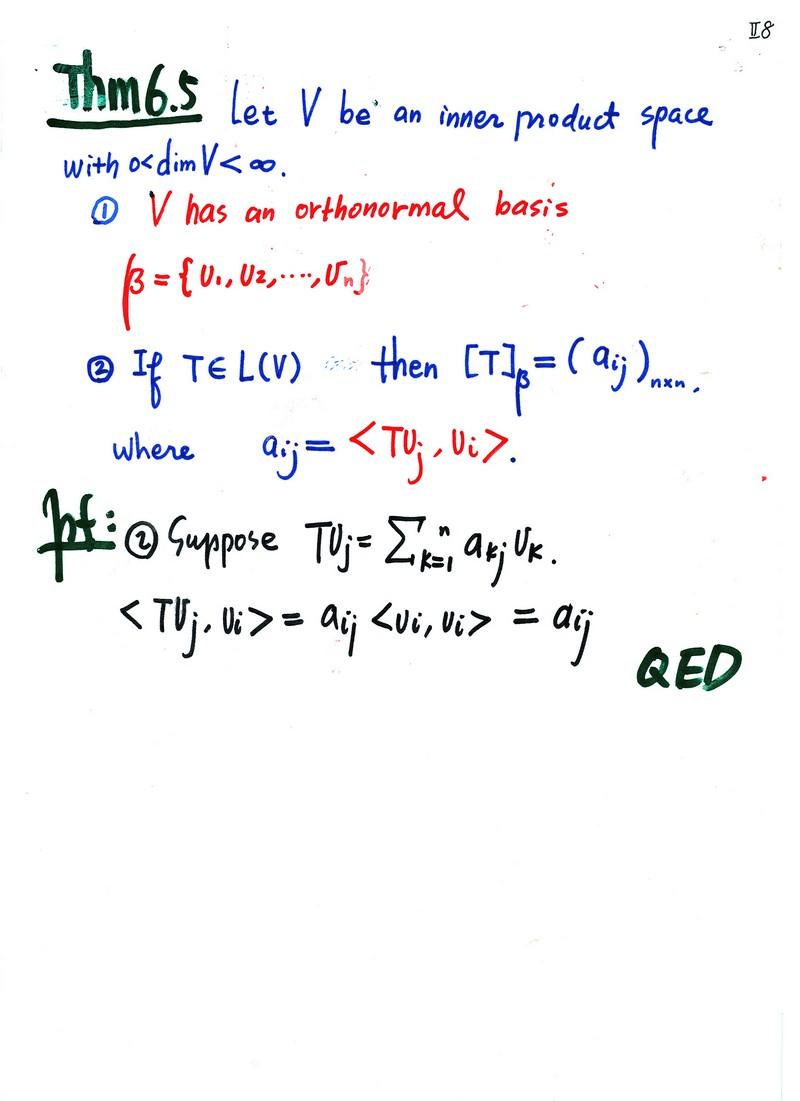 II8
Thm6.5 Let V be an inner product space
with 0<dim V<∞.
① V has an orthonormal basis
β = {v₁, v₂, ...., vₙ}
② If T∈L(V) then [T]_β = (a_ij)_{n×n}.
where a_ij = <Tv_j, v_i>.
pf: ② Suppose Tv_j = ∑_{k=1}^n a_kj v_k.
<Tv_j, v_i> = a_ij <v_i, v_i> = a_ij
QED